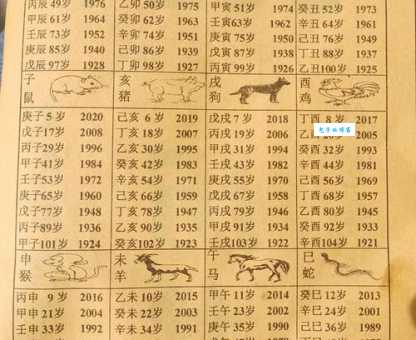 丙辰49岁 1976 乙卯50岁 1975 甲寅51岁 1974 癸丑52岁 1973
甲辰61岁 1964 癸卯62岁 1963 壬寅63岁 1962 辛丑64岁 1961
壬辰73岁 1952 辛卯74岁 1951 庚寅75岁 1950 己丑76岁 1949
庚辰85岁 1940 己卯86岁 1939 戊寅87岁 1938 丁丑88岁 1937
戊辰97岁 1928 丁卯98岁 1927 丙寅99岁 1926 乙丑100岁 1925
子 亥 戌 酉
鼠 猪 狗 鸡
庚子 5岁 2020 己亥 6岁 2019 戊戌 7岁 2018 丁酉 8岁 2017
戊子17岁 2008 丁亥18岁 2007 丙戌19岁 2006 2005
丙子29岁 1996 乙亥30岁 1995 甲戌31岁 1994 癸酉32岁 1993
甲子41岁 1984 癸亥42岁 1983 壬戌43岁 1982 辛酉44岁 1981
壬子53岁 1972 辛亥54岁 1971 庚戌55岁 1970 己酉56岁 1969
庚子65岁 1960 己亥66岁 1959 戊戌67岁 1958 丁酉68岁 1957
戊子77岁 1948 丁亥78岁 1947 丙戌79岁 1946 乙酉80岁 1945
丙子89岁 1936 乙亥90岁 1935 甲戌91岁 1934 癸酉92岁 1933
甲子101岁 1924 癸亥102岁 1923 壬戌103岁 1922 辛酉104岁 1921
申 未 午 巳
猴 羊 马 蛇
丙申 9岁 2016 乙未10岁 2015 甲午11岁 2014 癸巳12岁 2013
甲申21岁 2004 癸未22岁 2003 壬午23岁 2002 辛巳24岁 2001
壬申33岁 1992 辛未34岁 1991 庚午35岁 1990 己巳36岁 1989